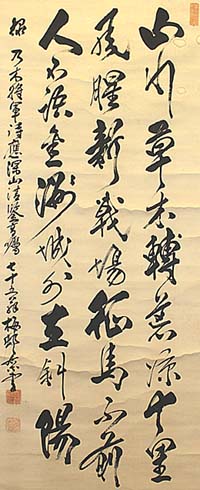 山川草木轉荒涼十里
風腥新戰場征馬不前
人不語金州城外立斜陽
錄乃木將軍詩應深山清鑒囑 七十五翁梅邨書